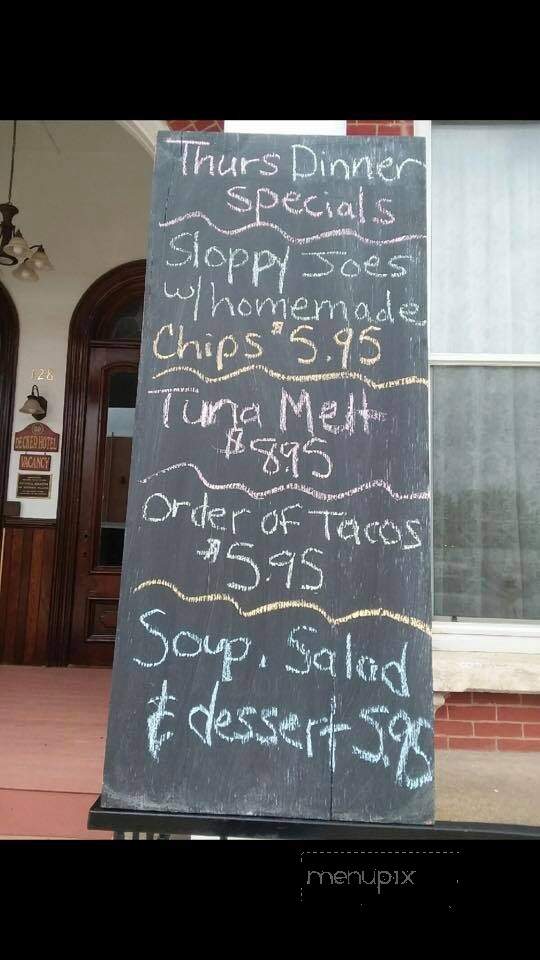 Thurs Dinner
specials
Sloppy Joes
w/ homemade
Chips $5.95
Tuna Melt
$8.95
Order of Tacos
$5.95
Soup, Salad
& dessert 5.95
128
DECKER HOTEL
VACANCY
menupix